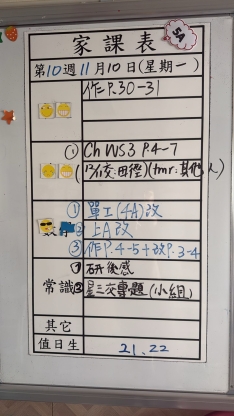 家課表
5A
第10週11月10日(星期一)
作P.30-31
① Ch WS3 P.4-7
(tmr:其他人)
① 單工(4A)改
② 上A改
③ 作P.4-5+改P.3-4
① 研後感
常識② 星三交專題(小組)
其它
值日生 21.22